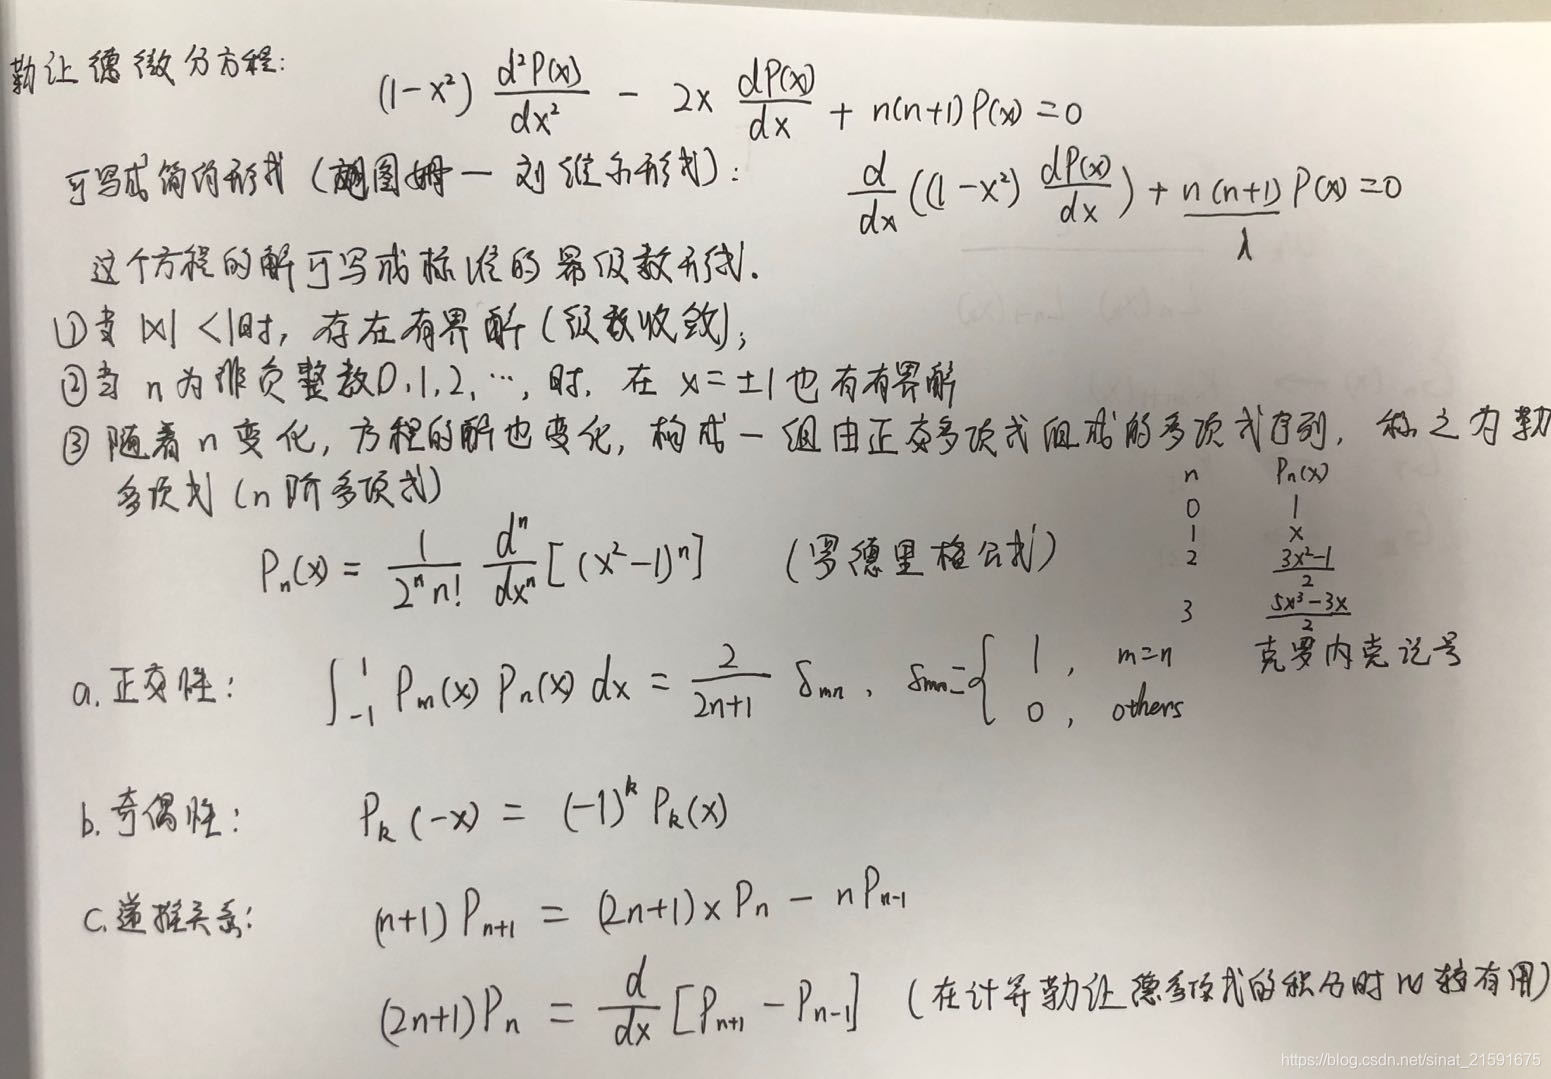 勒让德微分方程:
(1-x²) d²P(x)/dx² - 2x dP(x)/dx + n(n+1)P(x)=0
可写成简约形式(施图姆—刘维尔形式): d/dx((1-x²) dP(x)/dx) + n(n+1) P(x)=0
λ
这个方程的解可写成标准的幂级数形式.
①当 |x| <1时, 存在有界解(级数收敛);
②当 n为非负整数0,1,2,…,时, 在 x=±1也有有界解
③随着n变化, 方程的解也变化, 构成一组由正交多项式组成的多项式序列, 称之为勒
多项式(n阶多项式)
n Pn(x)
0 1
1 x
2 3x²-1/2
3 5x³-3x/2
Pn(x) = 1/2ⁿn! dⁿ/dxⁿ [(x²-1)ⁿ] (罗德里格公式)
a.正交性: ∫₋₁¹ Pm(x) Pn(x) dx = 2/2n+1 δmn, δmn={ 1, m=n 克罗内克记号
0, others
b.奇偶性: Pk(-x) = (-1)ᵏ Pk(x)
c.递推关系: (n+1) Pn+1 = (2n+1)xPn - nPn-1
(2n+1)Pn = d/dx [Pn+1 - Pn-1] (在计算勒让德多项式的积分时比较有用)
https://blog.csdn.net/sinat_21591675